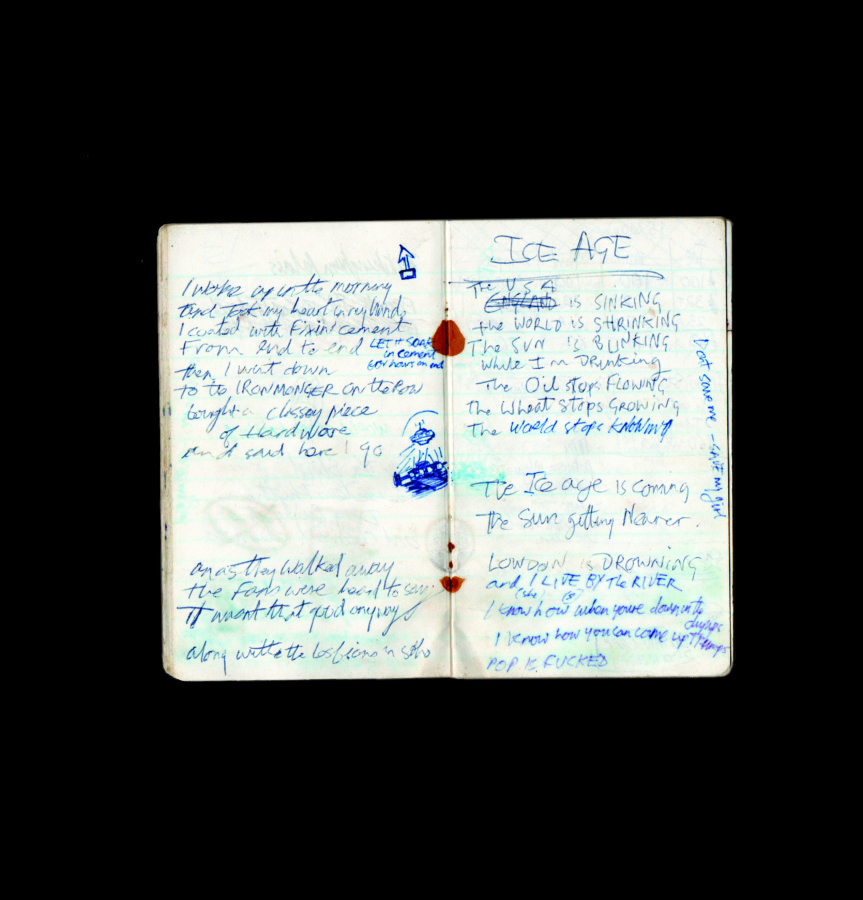 I woke up in the morning
and Took my heart in my hands
I coated with Fixin' cement
From end to end
LET IT SOAK
in cement
for hours on end
then I went down
to to IRONMONGER ON the ROW
bought a classey piece
of Hardware
and said here I go
an as they walked away
the Fans were heard to say
IT wasnt that good anyway
along with the lesbians in soho
ICE AGE
The U.S.A
ENGLAND IS SINKING
the WORLD IS SHRINKING
The SUN IS BLINKING
while I'm DRINKING
The Oil stops FLOWING
The Wheat stops GROWING
The World stops KNOWING
The Ice age is coming
The Sun getting Nearer.
LONDON is DROWNING
and I LIVE BY the RIVER
I know how when youre down in th
I know how you can come up
POP IS FUCKED
Dont save me - SAVE my girl